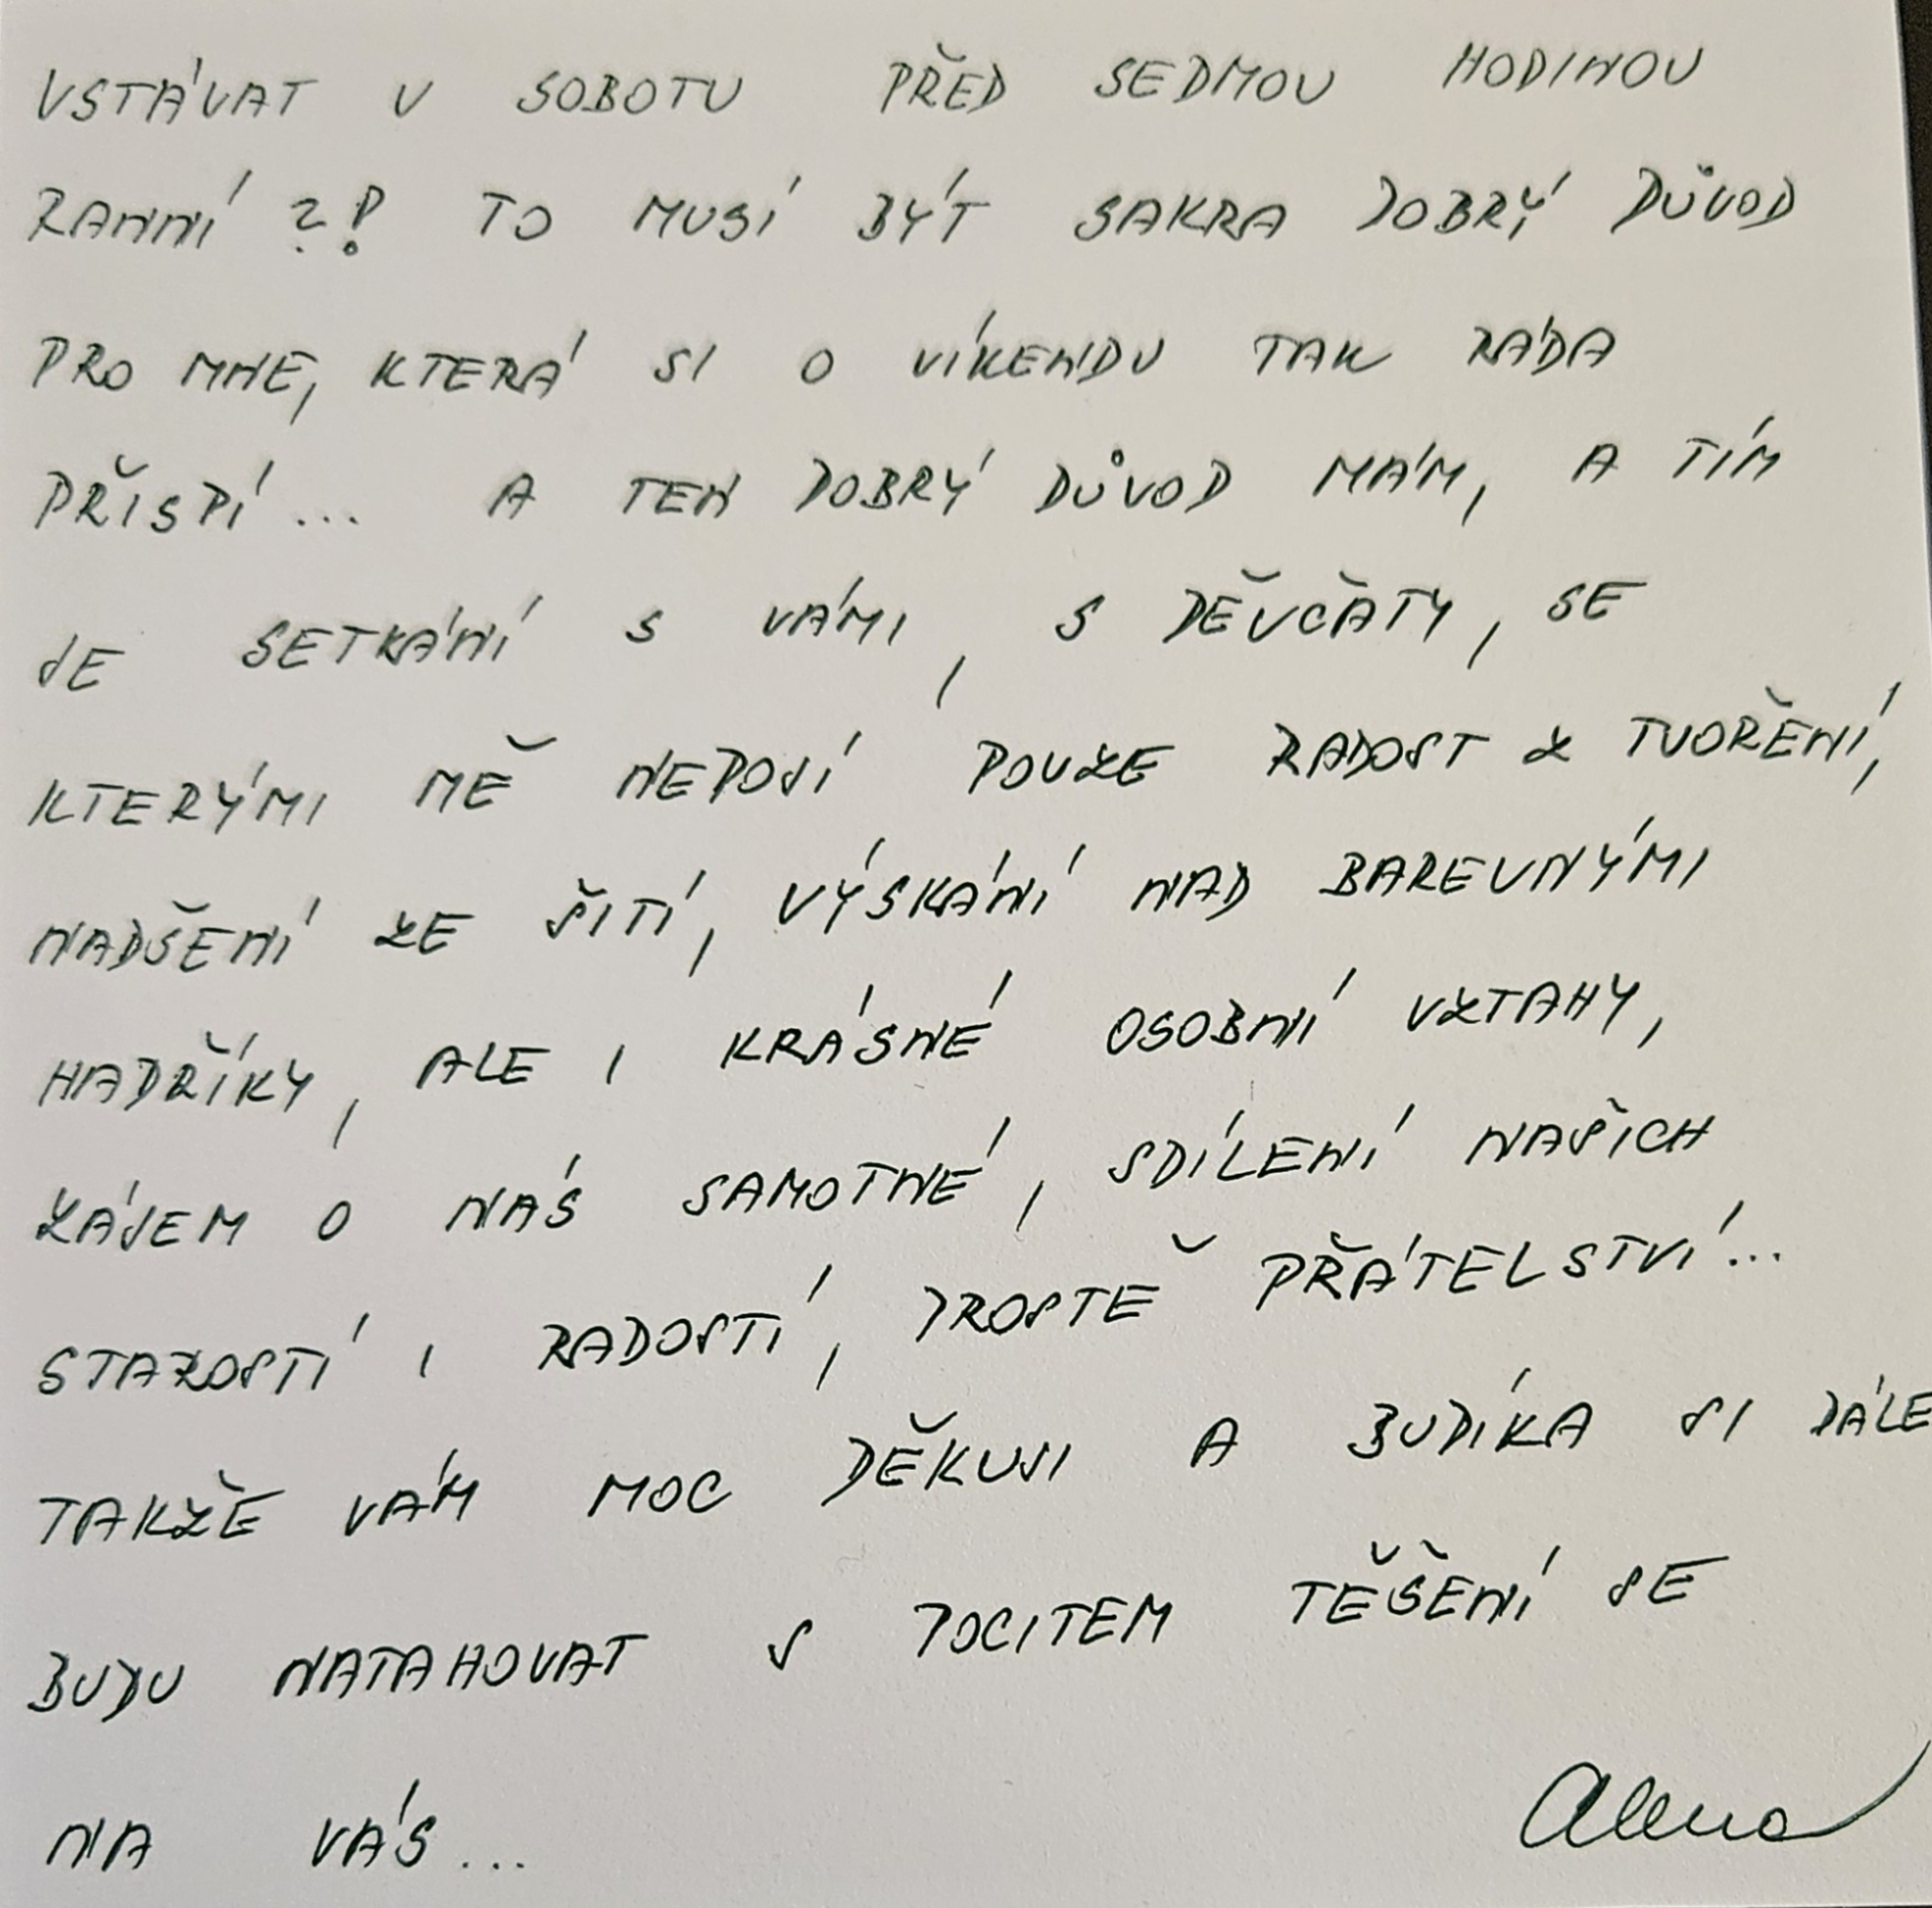 VSTÁVAT V SOBOTU PŘED SEDMOU HODINOU
RANNÍ ?! TO MUSÍ BÝT SAKRA DOBRÝ DŮVOD
PRO MNE, KTERÁ SI O VÍKENDU TAK RÁDA
PŘISPÍ... A TEN DOBRÝ DŮVOD MÁM, A TÍM
JE SETKÁNÍ S VÁMI, S DĚVČATY, SE
KTERÝMI MĚ NEPOJÍ POUZE RADOST Z TVOŘENÍ,
NADŠENÍ ZE ŠITÍ, VÝSKÁNÍ NAD BAREVNÝMI
HADŘÍKY, ALE I KRÁSNÉ OSOBNÍ VZTAHY,
ZÁJEM O NÁS SAMOTNÉ, SDÍLENÍ NAŠICH
STAROSTÍ I RADOSTÍ, PROSTĚ PŘÁTELSTVÍ...
TAKŽE VÁM MOC DĚKUJI A BUDÍKA SI DÁLE
BUDU NATAHOVAT S POCITEM TĚŠENÍ SE
NA VÁS... Alena